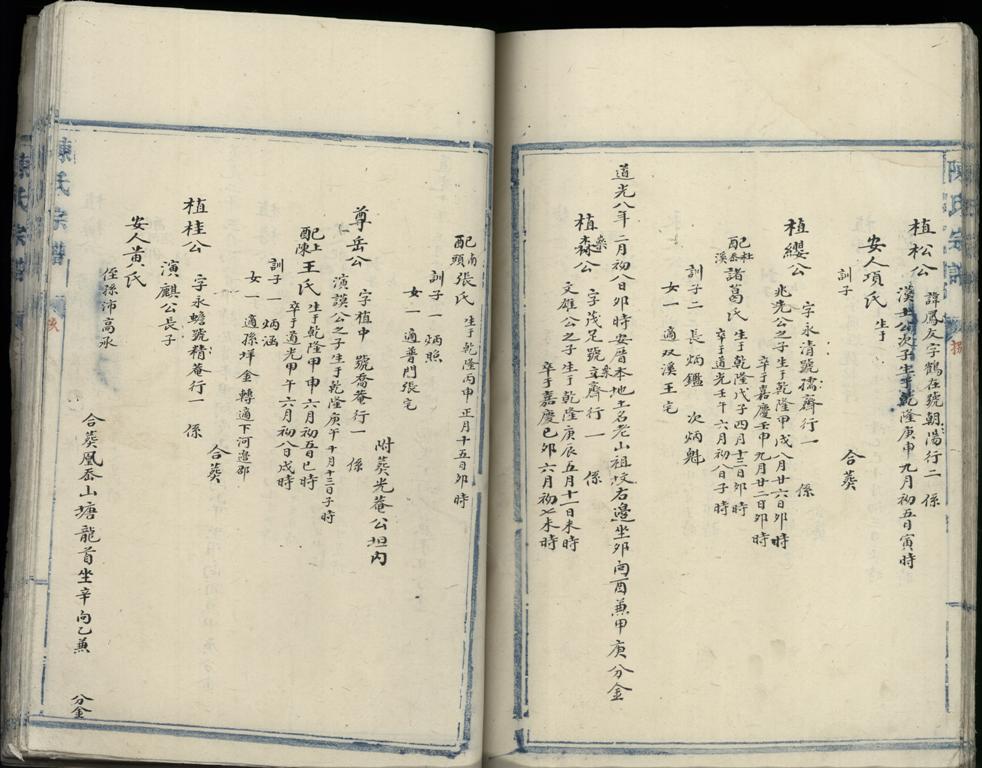 植松公
諱鳳友字鶴在號朝陽行二 係
漢士公次子生于乾隆庚申九月初五日寅時
安人項氏 生于
合葵
訓子
植纓公
字永清號擩齊行一 係
兆洸公之子生于乾隆甲戌八月廿六日卯時
卒于嘉慶壬申九月廿二日卯時
配杜溪諸葛氏
生于乾隆戊子四月十三日卯時
卒于道光壬午六月初八日子時
訓子二 長炳鑑 次炳魁
女一 適双溪王宅
道光八年二月初八日卯時安厝本地土名老山祖坟右邊坐卯向酉兼甲庚分金
植森公
字茂足號文齊行一 係
文雄公之子生于乾隆庚辰五月十一日未時
卒于嘉慶己卯六月初七未時
陳氏宗譜
配南頭張氏 生于乾隆丙申正月十五日卯時
訓子一 炳照
女一 適普門張宅
附葵光菴公坦內
尊岳公
字植中 號喬菴行一 係
演謨公之子生于乾隆庚午十月十三日子時
配上陳王氏
生于乾隆甲申六月初五日巳時
卒于道光甲午六月初八日戌時
訓子一 炳涵
女一 適孫垟金轉適下河邉邵
合葵
植桂公
字永蟾號精菴行一 係
演麒公長子
安人黄氏
侄孫沛高承
合葵鳳岙山塘龍首坐辛向乙兼 分金
陳氏宗譜